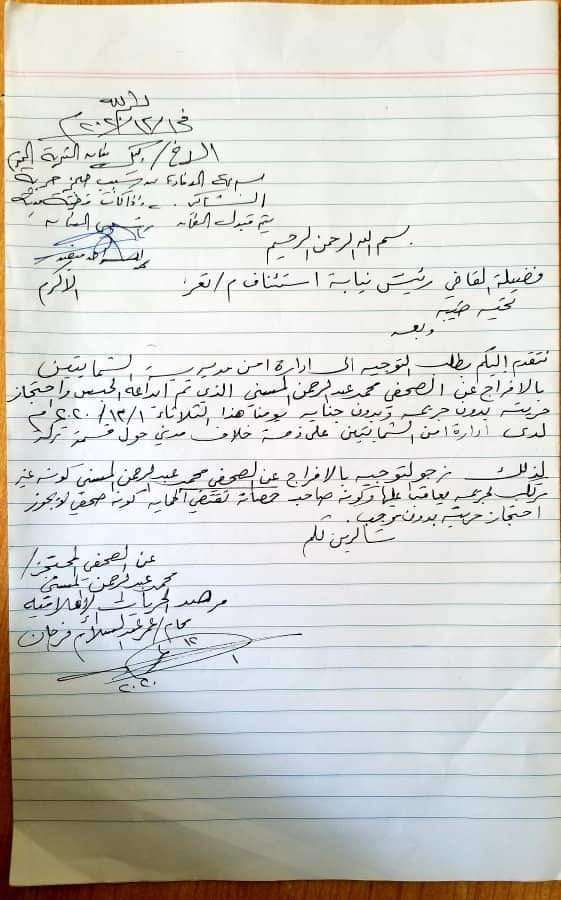 في ١/١٢/٢٠٢٠م
الاخ/ وكيل نيابة التربة
سرعة الافادة عن سبب حجز حرية
الشاكي .. واذا كانت قضيته مدنية
يتم
بسم الله الرحمن الرحيم
فضيلة القاضي رئيس نيابة استئناف م/تعز الاكرم
تحية طيبه
وبعد
نتقدم إليكم بطلب التوجيه الى ادارة امن مديرية الشمايتين
بالافراج عن الصحفي محمد عبدالرحمن المسني الذي تم ايداعه الحبس واحتجاز
حريته بدون جريمه وبدون جنايه يومنا هذا الثلاثاء ١/١٢/٢٠٢٠م
لدى ادارة امن الشمايتين على ذمة خلاف مدني حول قسمة تركه
لذلك نرجو التوجيه بالافراج عن الصحفي محمد عبدالرحمن المسني كونه غير
مرتكب لجريمه يعاقب عليها وكونه صاحب حصانة تقتضي الحمايه كونه صحفي لايجوز
احتجاز حريته بدون موجب.
شاكرين لكم
عن الصحفي المحتجز/
محمد عبدالرحمن المسني
مرصد الحريات الإعلامية
محام/ عمر عبدالسلام فرحان
١
١٢
٢٠٢٠